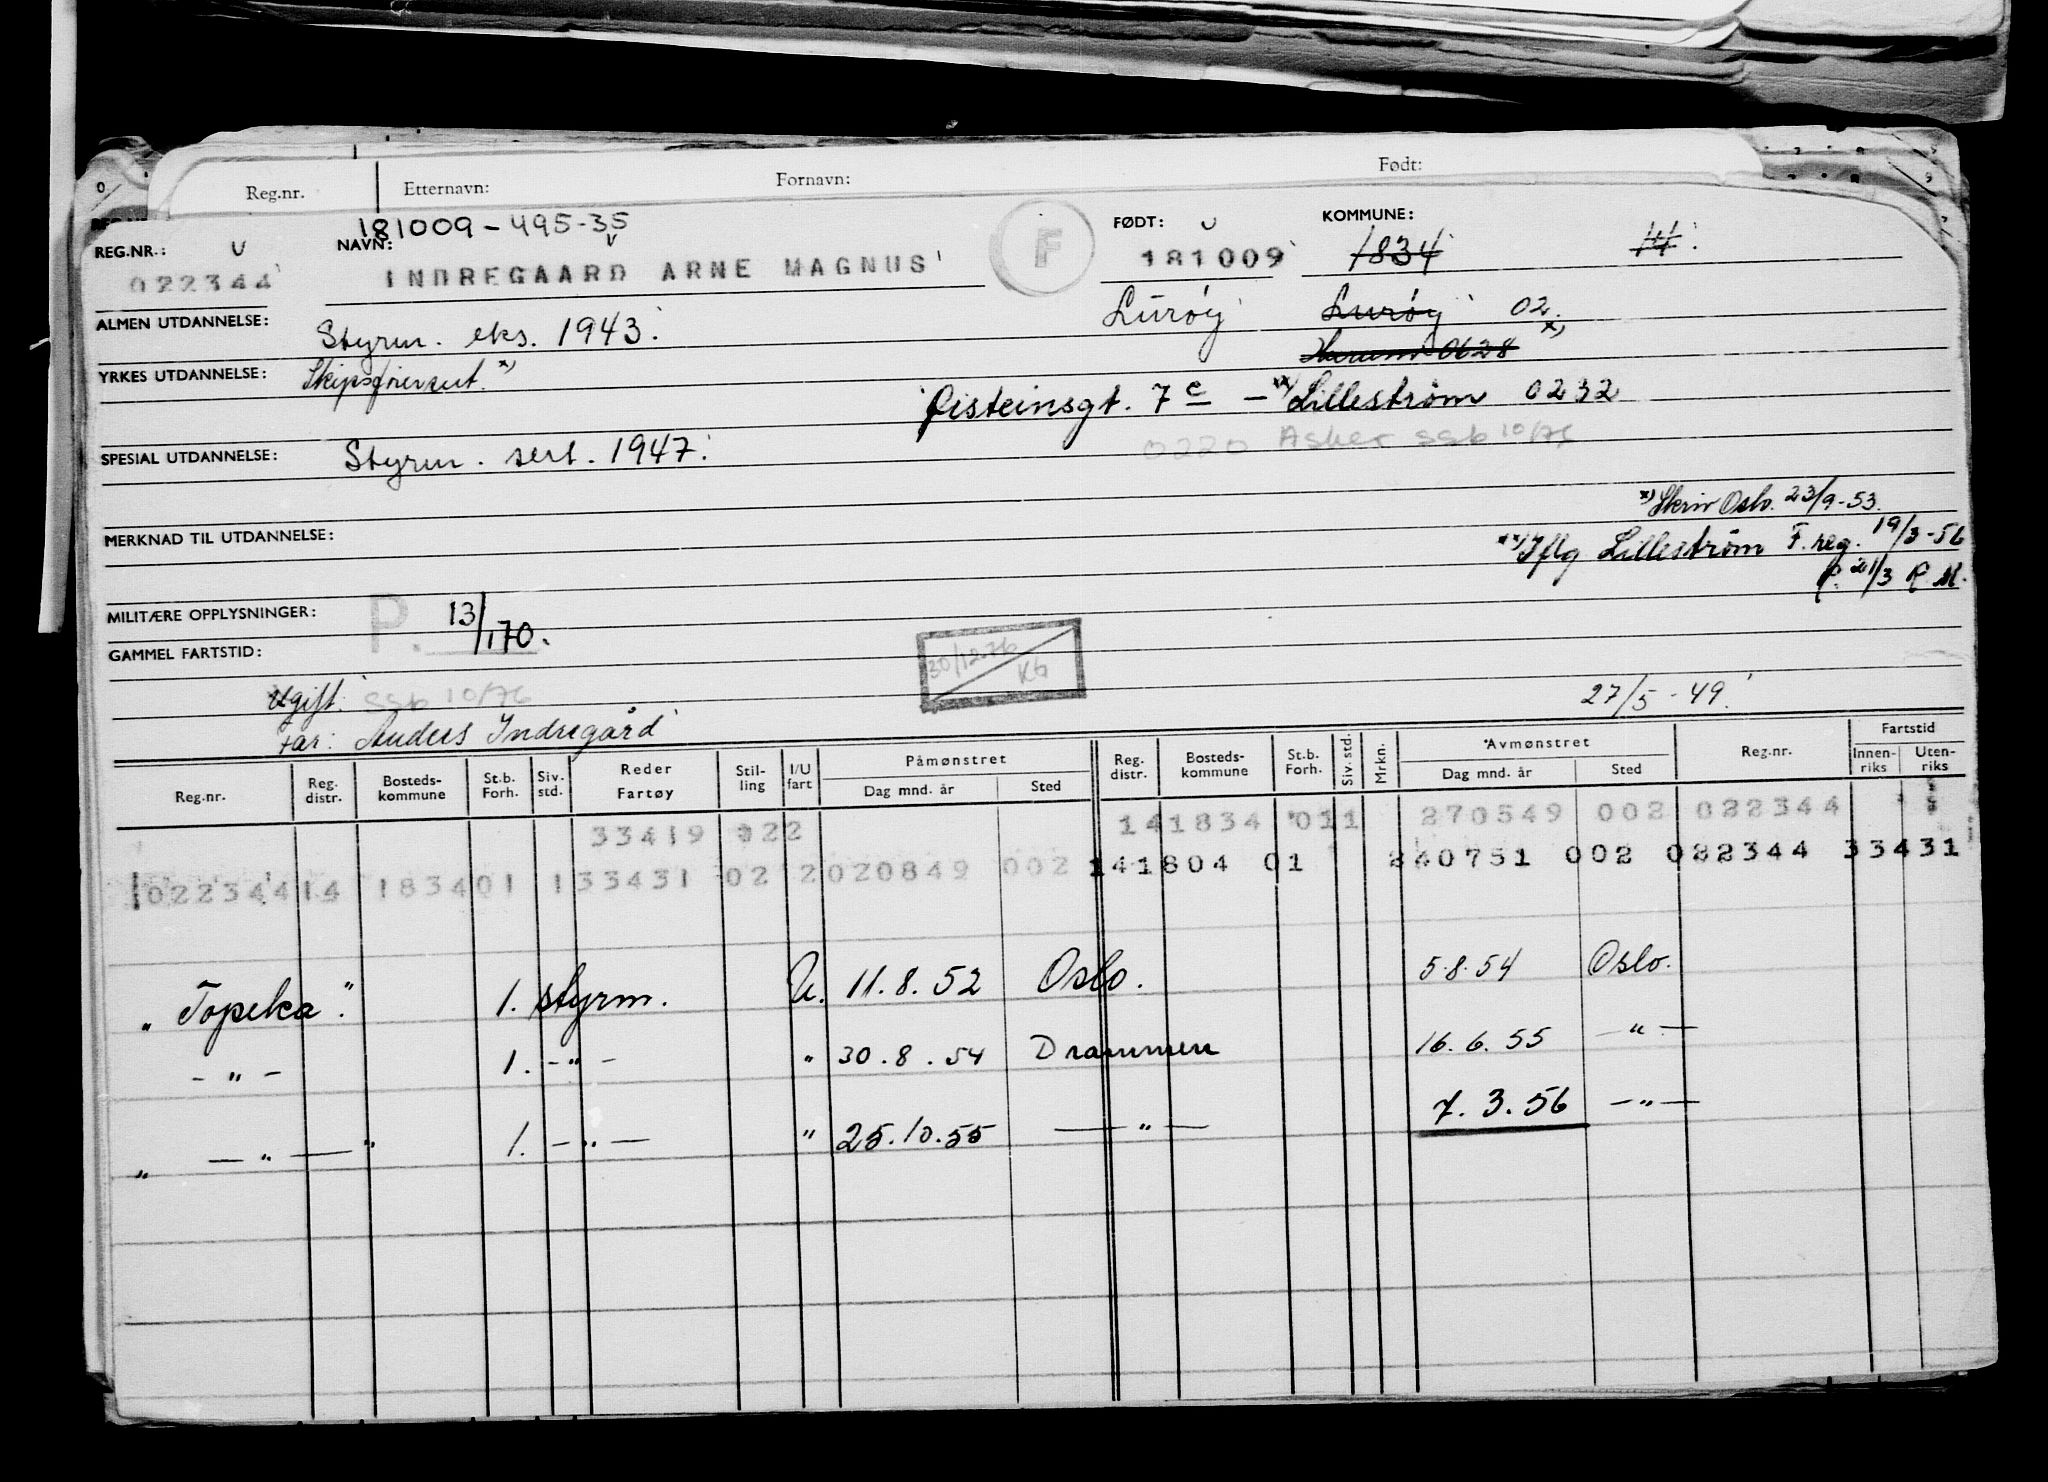 Reg.nr. Etternavn: Fornavn: Født:
181009-495-35
REG.NR.: NAVN: F FØDT: KOMMUNE:
022344 INDREGAARD ARNE MAGNUS 181009 1834 14
Lurøy Lurøy 02 x)
ALMEN UTDANNELSE: Styrm. eks. 1943.
0628
YRKES UTDANNELSE: Skipsførersert. x)
Øisteinsgt. 7c — xx) Lillestrøm 0232
0220 Asker ssb 10/76
SPESIAL UTDANNELSE: Styrm. sert. 1947.
x) Skriv Oslo. 23/9-53.
MERKNAD TIL UTDANNELSE:
xx) Iflg Lillestrøm F. reg. 19/3-56
P. 21/3 R M.
MILITÆRE OPPLYSNINGER: P. 13/1 70.
GAMMEL FARTSTID:
30/12.76 Kb
Ugift. ssb 10/76
27/5-49.
Far: Anders Indregård
Reg.nr. Reg. distr. Bosteds-kommune St.b. Forh. Siv. std. Reder Fartøy Stil-ling I/U fart Påmønstret Dag mnd. år Sted Reg. distr. Bosteds-kommune St.b. Forh. Siv. std. Mrkn. Avmønstret Dag mnd. år Sted Reg.nr. Fartstid Innen-riks Uten-riks
33419 022 141834 011 270549 002 022344
022344 14 183401 133431 02 2 020849 002 141804 01 240751 002 022344 33431
"Topeka". 1. styrm. U. 11.8.52 Oslo. 5.8.54 Oslo.
- " - 1. - " - " 30.8.54 Drammen 16.6.55 — " —
" — " — " 1. — " — " 25.10.55 — " — 7.3.56 — " —